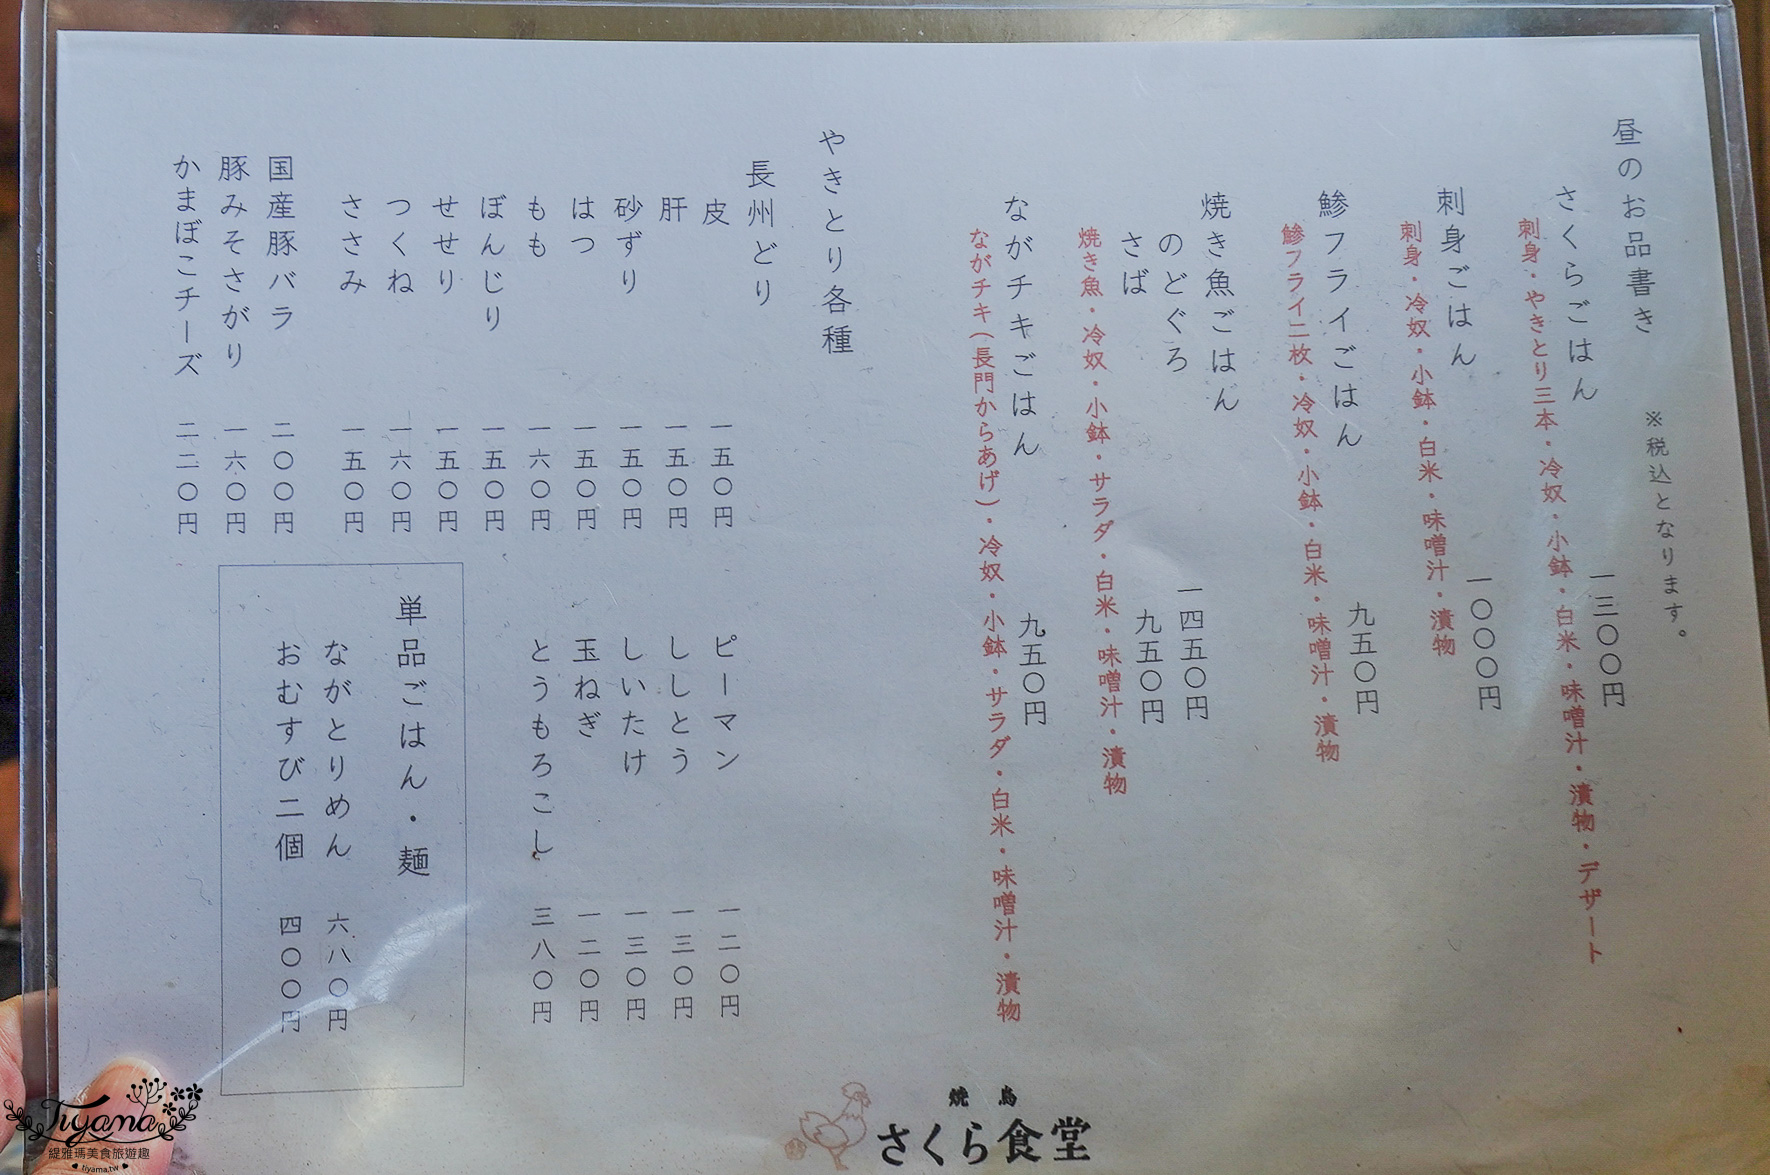 昼のお品書き
※税込となります。
さくらごはん 一三〇〇円
刺身・やきとり三本・冷奴・小鉢・白米・味噌汁・漬物・デザート
刺身ごはん 一〇〇〇円
刺身・冷奴・小鉢・白米・味噌汁・漬物
鯵フライごはん 九五〇円
鯵フライ二枚・冷奴・小鉢・白米・味噌汁・漬物
焼き魚ごはん
のどぐろ 一四五〇円
さば 九五〇円
焼き魚・冷奴・小鉢・サラダ・白米・味噌汁・漬物
ながチキごはん 九五〇円
ながチキ(長門からあげ)・冷奴・小鉢・サラダ・白米・味噌汁・漬物
やきとり各種
長州どり
皮 一五〇円
肝 一五〇円
砂ずり 一五〇円
はつ 一五〇円
もも 一六〇円
ぼんじり 一五〇円
せせり 一五〇円
つくね 一六〇円
ささみ 一五〇円
国産豚バラ 二〇〇円
豚みそさがり 一六〇円
かまぼこチーズ 二二〇円
ピーマン 一二〇円
ししとう 一三〇円
しいたけ 一三〇円
玉ねぎ 一二〇円
とうもろこし 三八〇円
単品ごはん・麺
ながとりめん 六八〇円
おむすび二個 四〇〇円
焼鳥
さくら食堂
Tiyama
緹雅瑪美食旅遊趣
tiyama.tw